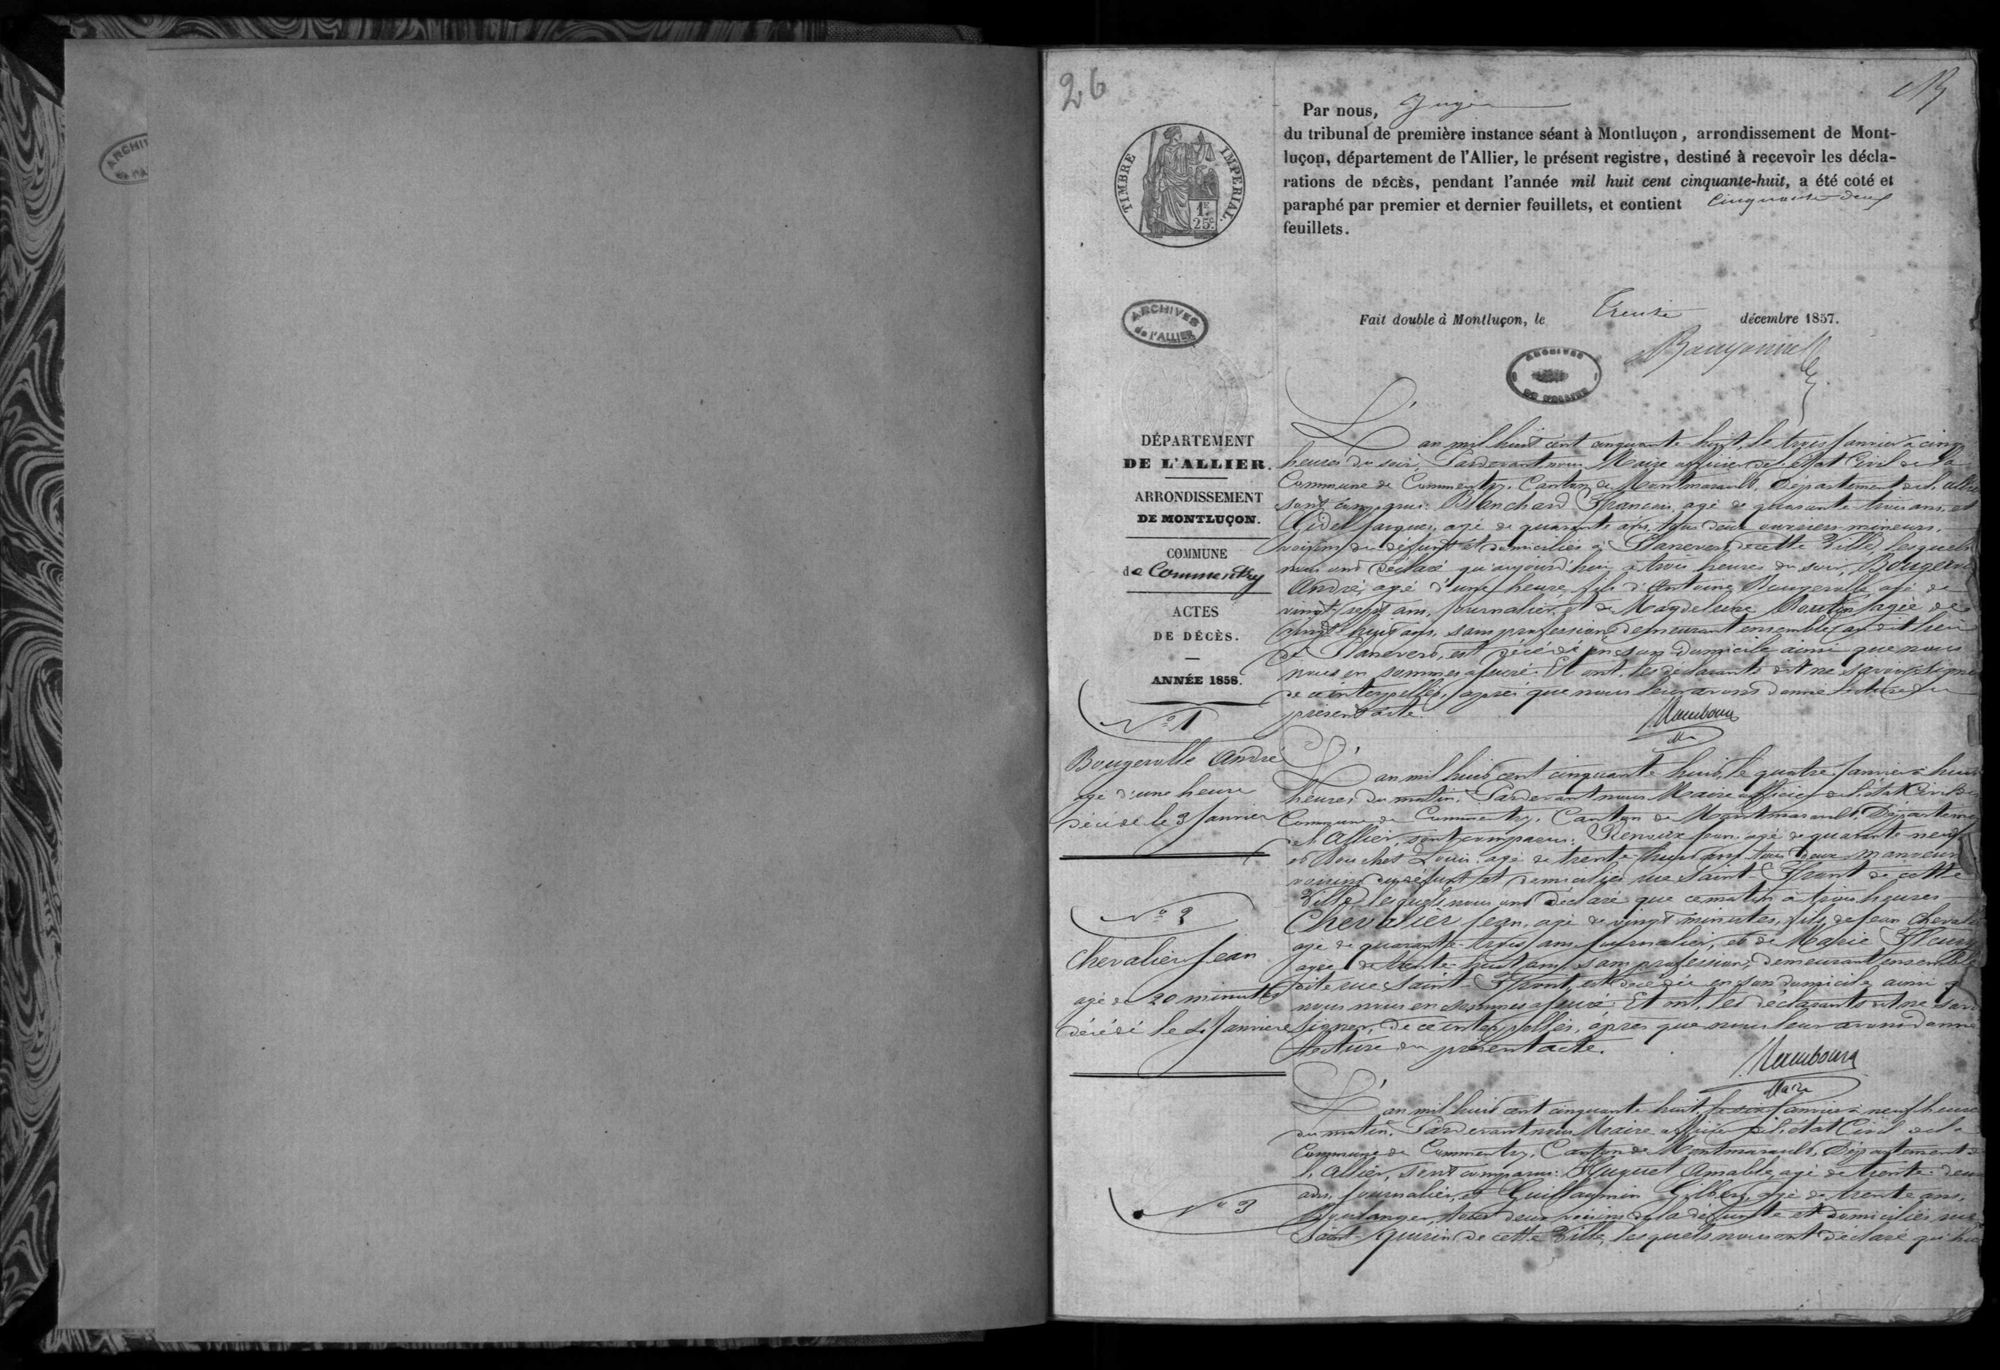 26
Par nous, Juge
du tribunal de première instance séant à Montluçon, arrondissement de Mont-
luçon, département de l'Allier, le présent registre, destiné à recevoir les décla-
rations de DÉCÈS, pendant l'année mil huit cent cinquante-huit, a été coté et
paraphé par premier et dernier feuillets, et contient Cinquante deux
feuillets.
TIMBRE IMPERIAL
1F
25c
Fait double à Montluçon, le Trente décembre 1857.
ARCHIVES
de l'ALLIER
ARCHIVES
DE L'ALLIER
DÉPARTEMENT
DE L'ALLIER.
ARRONDISSEMENT
DE MONTLUÇON.
COMMUNE
de Commentry
ACTES
DE DÉCÈS.
ANNÉE 1858.
N° 1
Bougerolle André
agé d'une heure
Décédé le 3 Janvier
L'an mil huit cent cinquante huit, le trois Janvier à cinq
heures du soir, Pardevant nous Maire officier de l'état Civil de la
Commune de Commentry, Canton de Montmarault, Département de l'Allier
sont comparus: Blanchard François, agé de quarante trois ans, et
Gidel Jacques, agé de quarante ans, tous deux ouvriers mineurs,
voisins du défunt et domiciliés à Planevers de cette Ville, lesquels
nous ont déclaré qu'aujourd'hui, à trois heures du soir,
André, agé d'une heure, fils d'Antoine Bougerolle, agé de
vingt sept ans, Journalier, et de Magdeleine agée de
vingt huit ans, sans profession, demeurant ensemble au dit lieu
de Planevers, est décédé en son domicile ainsi que nous
nous en sommes assuré. Et ont, les déclarants dit ne savoir signer
de ce interpellés, après que nous leur avons donné lecture du
présent acte.
Rambourg
N° 2
Chevalier Jean
agé de 20 minutes
décédé le 4 Janvier
L'an mil huit cent cinquante huit, le quatre Janvier à huit
heures du matin, Pardevant nous Maire officier de l'état Civil de
Commune de Commentry, Canton de Montmarault, Département
de l'Allier, sont comparus: Jean, agé de quarante neuf
et Louis, agé de trente huit ans tous deux manoeuvres
voisins du défunt et domiciliés rue Saint-Front de cette
Ville, lesquels nous ont déclaré que ce matin à trois heures
Chevalier Jean, agé de vingt minutes, fils de Jean Chevalier
agé de quarante-trois ans Journalier, et de Marie Fleury
agée de trente-huit ans, sans profession, demeurant ensemble
dite rue Saint-Front, est décédé en son domicile ainsi
nous nous en sommes assuré. Et ont, les déclarants dit ne savoir
signer, de ce interpellés, après que nous leur avons donné
lecture du présent acte.
Rambourg
Maire
N° 3
L'an mil huit cent cinquante huit, le six Janvier à neuf heures
du matin, Pardevant nous Maire officier de l'état Civil de la
Commune de Commentry, Canton de Montmarault, Département de
l'Allier, sont comparus: Huguet Amable, agé de trente deux
ans, Journalier, et Guillaumin Gilbert, agé de trente ans,
Boulanger, tous deux voisins de la défunte et domiciliés rue
Saint-Quirin de cette Ville, lesquels nous ont déclaré qu'hier